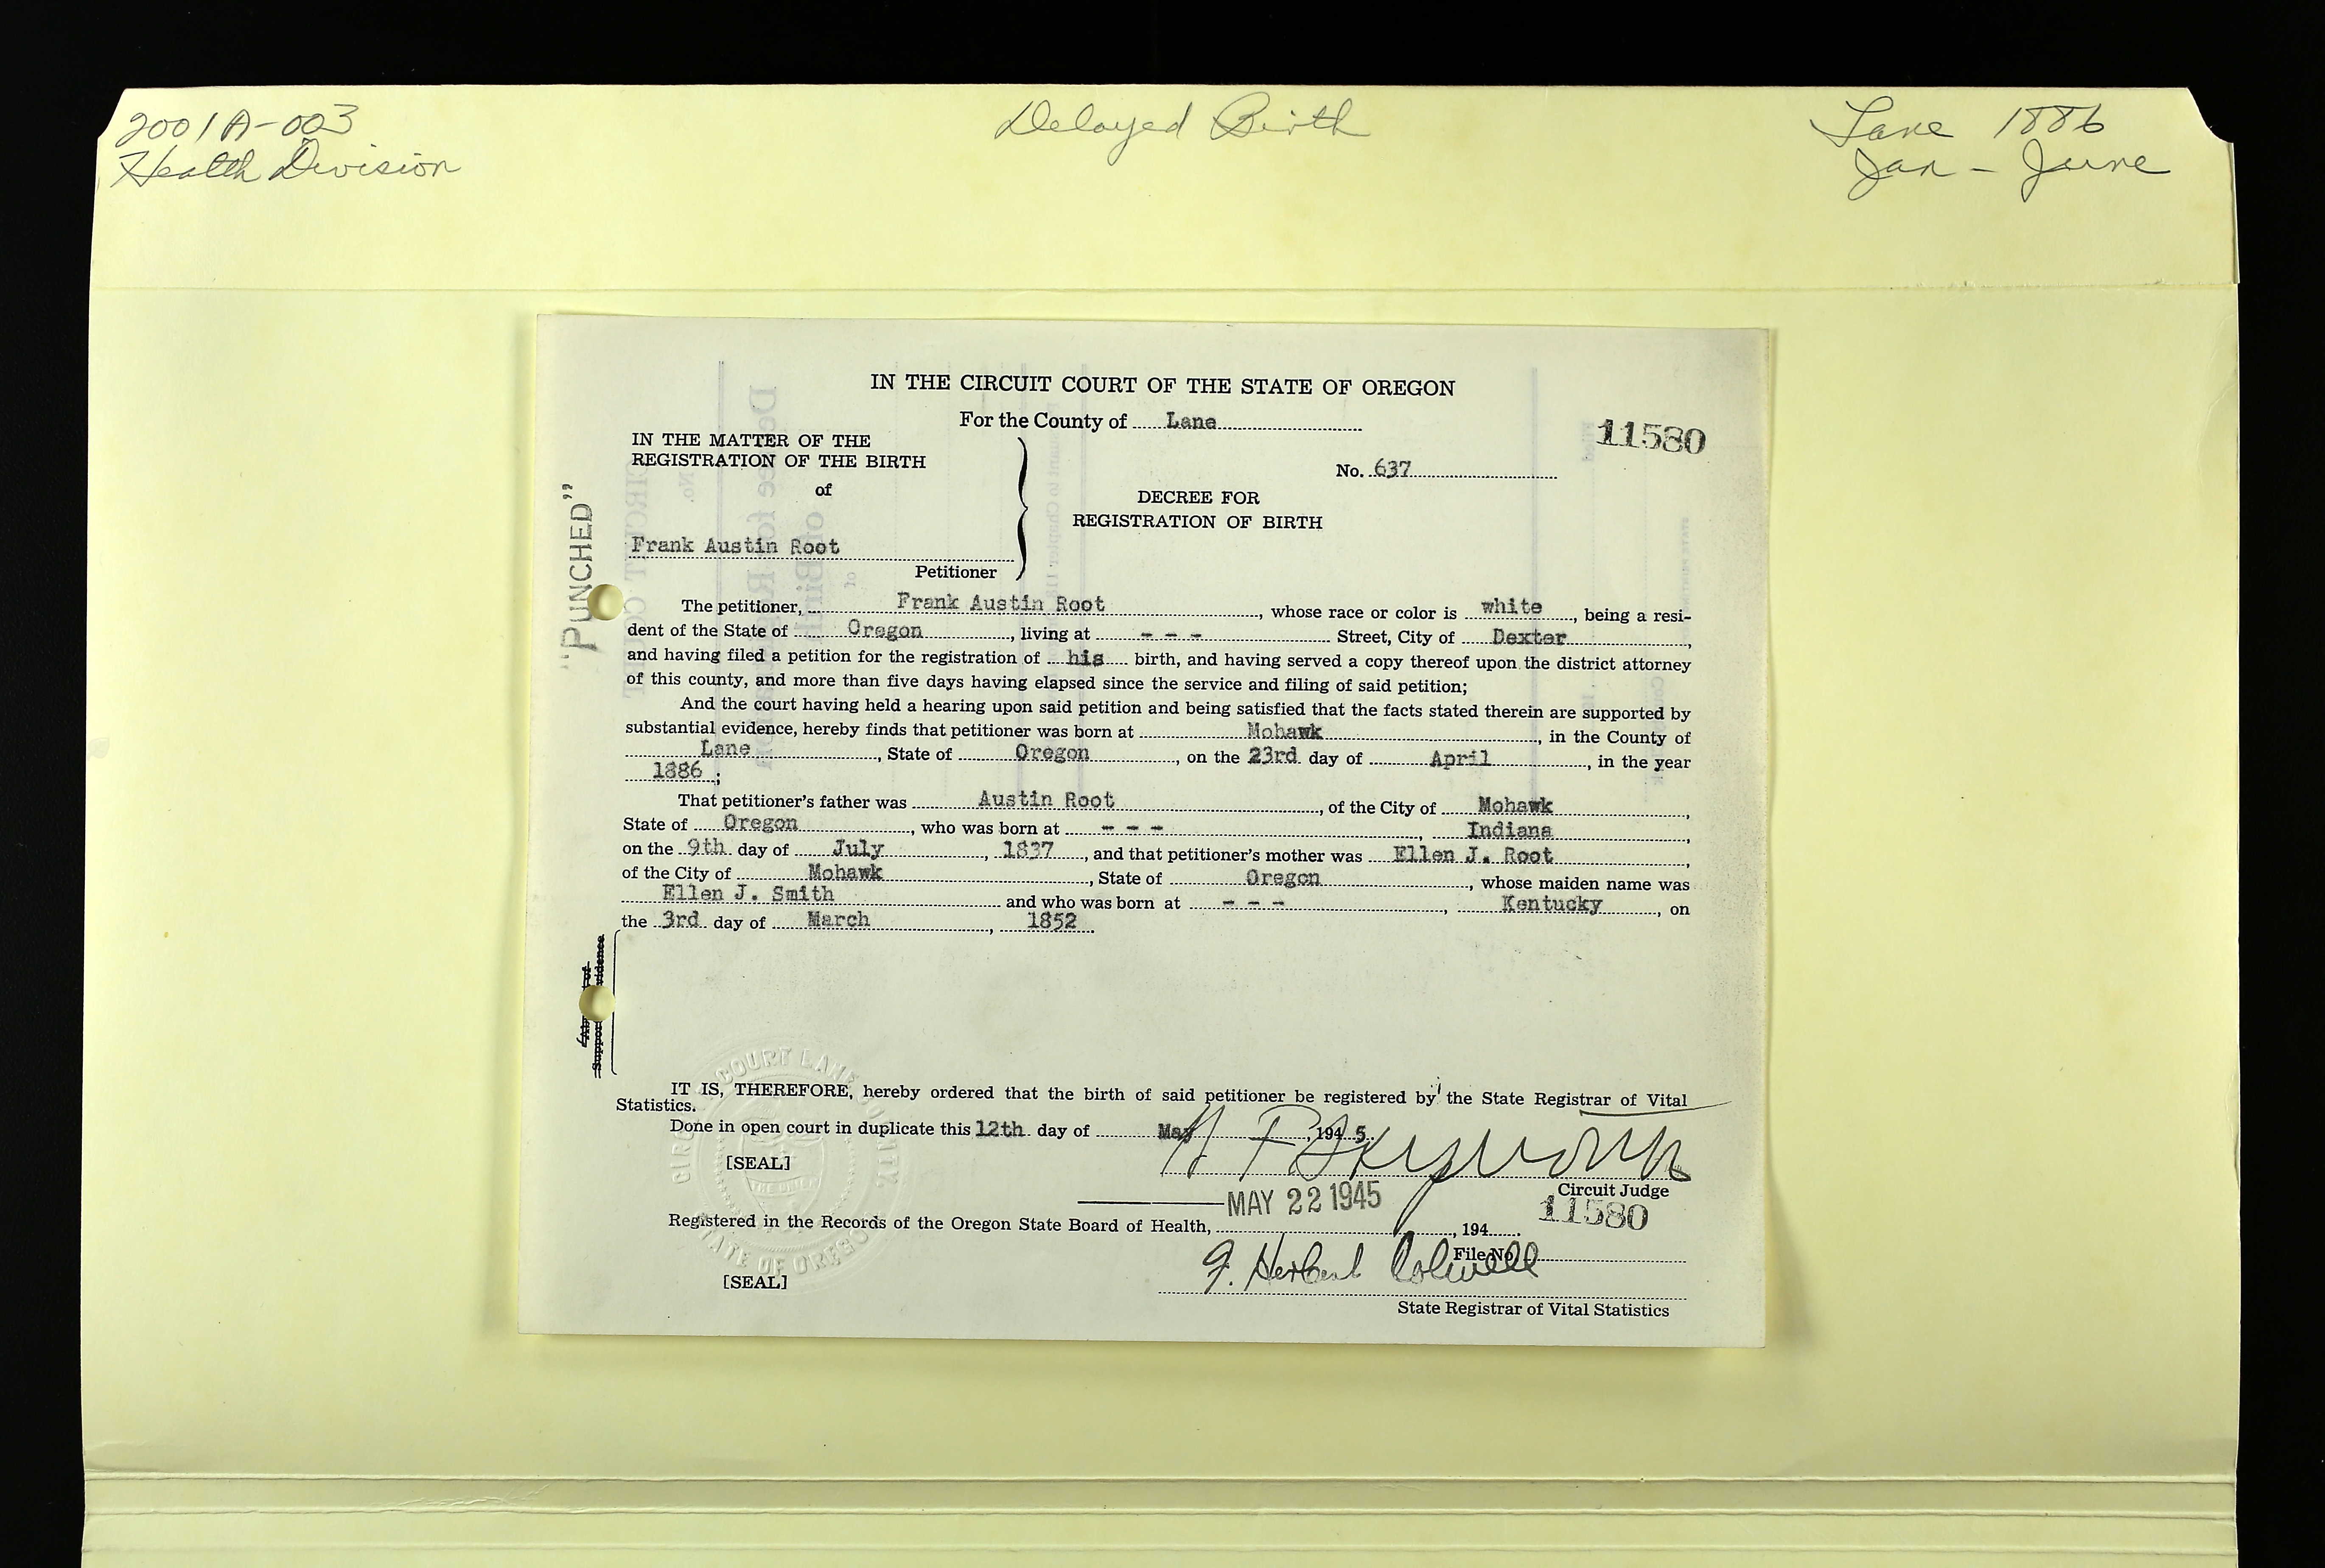 2001A-003
Health Division
Delayed Birth
Lane 1886
Jan - June
IN THE CIRCUIT COURT OF THE STATE OF OREGON
For the County of Lane
11580
IN THE MATTER OF THE
REGISTRATION OF THE BIRTH
of
Frank Austin Root
Petitioner
No. 637
DECREE FOR
REGISTRATION OF BIRTH
"PUNCHED"
The petitioner, Frank Austin Root, whose race or color is white, being a resi-
dent of the State of Oregon, living at - - - Street, City of Dexter,
and having filed a petition for the registration of his birth, and having served a copy thereof upon the district attorney
of this county, and more than five days having elapsed since the service and filing of said petition;
And the court having held a hearing upon said petition and being satisfied that the facts stated therein are supported by
substantial evidence, hereby finds that petitioner was born at Mohawk, in the County of
Lane, State of Oregon, on the 23rd day of April, in the year
1886;
That petitioner's father was Austin Root, of the City of Mohawk,
State of Oregon, who was born at - - -, Indiana,
on the 9th day of July, 1837, and that petitioner's mother was Ellen J. Root,
of the City of Mohawk, State of Oregon, whose maiden name was
Ellen J. Smith and who was born at - - -, Kentucky, on
the 3rd day of March, 1852.
IT IS, THEREFORE, hereby ordered that the birth of said petitioner be registered by the State Registrar of Vital
Statistics.
Done in open court in duplicate this 12th day of May, 1945.
[SEAL]
CIRCUIT COURT LANE COUNTY
STATE OF OREGON
THE UNION
Circuit Judge
MAY 22 1945
11580
Registered in the Records of the Oregon State Board of Health, , 194
File No.
F. Herbert Colwell
[SEAL]
State Registrar of Vital Statistics